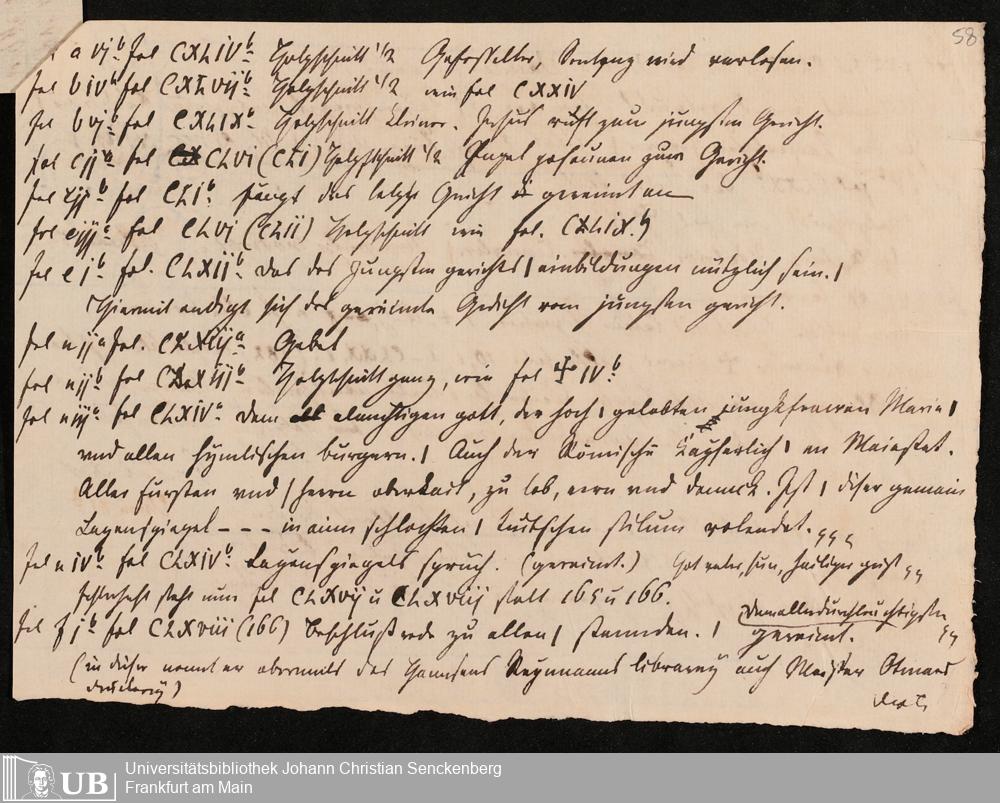 58
a vj b. fol CXLIV b. Holzschnitt 1/2 Gefoltelter, Sentenz wird verlesen.
fol b iv b fol CXLVij b. Holzschnitt 1/2 wie fol CXXIV
fol b vj b. fol CXLIX b. Holzschnitt kleiner. Jesus ruft zum jungsten Gericht.
fol c jj a fol CLVI (CLI) Holzschnitt 1/2 Engel posaunen zum Gericht.
fol c jj b fol CLI b fangt das letzte Gericht gereimt an
fol c jjj a fol CLVI (CLII) Holzschnitt wie fol. CXLIX. b)
fol e j b fol. CLXIj b. das des Jungsten gerichts / einbildungen nützlich sein. /
Hiermit endigt sich das gereimte Gedicht vom jüngsten gericht.
fol e jj a fol. CLXIIj a. Gebet
fol e jj b fol CLXIIj b. Holzschnitt ganz, wie fol IV b.
fol e iij a fol CLXIV a. dem almechtigen gott, der hoch / gelobten jungkfrawen Maria /
vnd allen hymlischen burgern. / Auch der Römischn kayserlich / en Maiestet.
Aller fursten vnd / herrn oberkait, zu lob, eern vnd danck. Ist / diser gemain
Layenspiegel - - - in ainem schlechten / teutschen stilum volendet.
fol e iv b fol CLXIV b. Layenspiegels spruch. (gereimt.) Got vater, sun, hailiger geist
fehlerhaft steht nun fol CLXVIj u CLXVIIj statt 165 u 166.
fol f j b fol CLXVIII (166) Beschlußrede zu allen / stennden. / gereimt. Dem allerdurchleuchtigsten
(in dieser nennt er abermals des Hannsens Reynmanns librarey auch Meister Otmars
druckerey)
Universitätsbibliothek Johann Christian Senckenberg
UB Frankfurt am Main